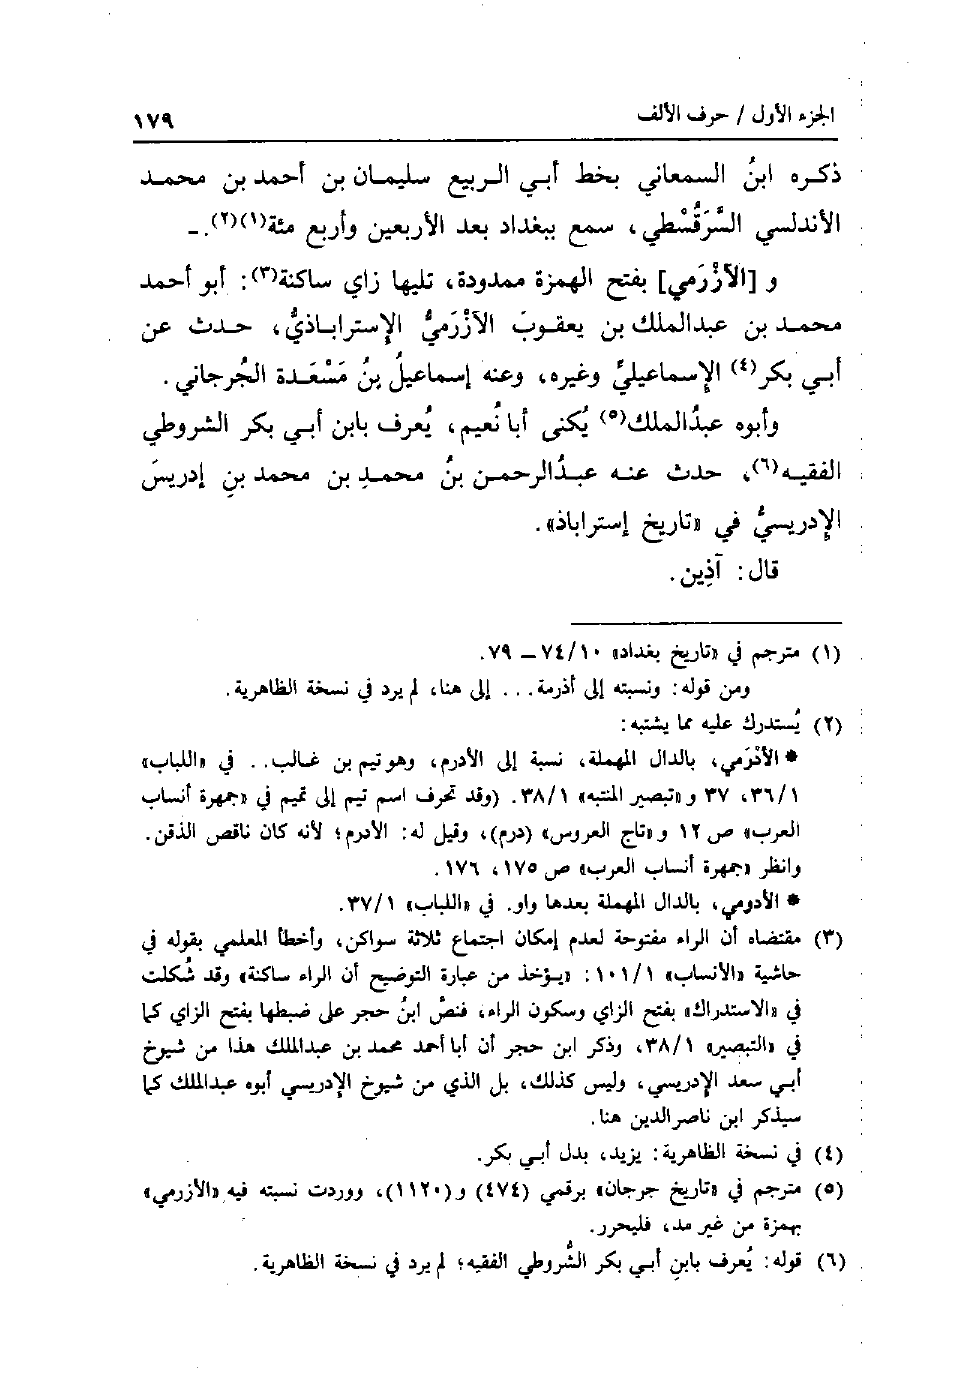 الجزء الأول / حرف الألف
١٧٩
ذكره ابنُ السمعاني بخط أبي الربيع سليمان بن أحمد بن محمد
الأندلسي السَّرَقُسْطي، سمع ببغداد بعد الأربعين وأربع مئة(١)(٢). ـ
و [الآزْرَمي] بفتح الهمزة ممدودة، تليها زاي ساكنة(٣): أبو أحمد
محمد بن عبدالملك بن يعقوبَ الآزْرَميُّ الإستراباذيُّ، حدث عن
أبي بكر(٤) الإسماعيليِّ وغيره، وعنه إسماعيلُ بنُ مَسْعَدة الجُرجاني.
وأبوه عبدُالملك(٥) يُكنى أبا نُعيم، يُعرف بابن أبي بكر الشروطي
الفقيه(٦)، حدث عنه عبدُالرحمن بنُ محمدِ بن محمد بنِ إدريسَ
الإدريسيُّ في «تاريخ إستراباذ».
قال: آذِين.
(١) مترجم في «تاريخ بغداد» ١٠/ ٧٤ ــ ٧٩.
ومن قوله: ونسبته إلى أذرمة... إلى هنا، لم يرد في نسخة الظاهرية.
(٢) يُستدرك عليه مما يشتبه:
* الأَدْرَمي، بالدال المهملة، نسبة إلى الأدرم، وهو تيم بن غالب.. في «اللباب»
١/ ٣٦، ٣٧ و «تبصير المنتبه» ١/ ٣٨. (وقد تحرف اسم تيم إلى تميم في «جمهرة أنساب
العرب» ص ١٢ و «تاج العروس» (درم)، وقيل له: الأدرم؛ لأنه كان ناقص الذقن.
وانظر «جمهرة أنساب العرب» ص ١٧٥، ١٧٦.
* الأدومي، بالدال المهملة بعدها واو. في «اللباب» ١/ ٣٧.
(٣) مقتضاه أن الراء مفتوحة لعدم إمكان اجتماع ثلاثة سواكن، وأخطأ المعلمي بقوله في
حاشية «الأنساب» ١/ ١٠١: «يؤخذ من عبارة التوضيح أن الراء ساكنة» وقد شُكلت
في «الاستدراك» بفتح الزاي وسكون الراء، فنصُّ ابنُ حجر على ضبطها بفتح الزاي كما
في «التبصير» ١/ ٣٨، وذكر ابن حجر أن أبا أحمد محمد بن عبدالملك هذا من شيوخ
أبي سعد الإدريسي، وليس كذلك، بل الذي من شيوخ الإدريسي أبوه عبدالملك كما
سيذكر ابن ناصرالدين هنا.
(٤) في نسخة الظاهرية: يزيد، بدل أبي بكر.
(٥) مترجم في «تاريخ جرجان» برقمي (٤٧٤) و(١١٢٠)، ووردت نسبته فيه «الأزرمي»
بهمزة من غير مد، فليحرر.
(٦) قوله: يُعرف بابنِ أبي بكر الشُّروطي الفقيه؛ لم يرد في نسخة الظاهرية.